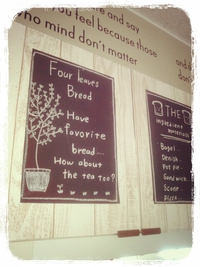 and say
you feel because those
who mind don't matter
and
don'
Four leaves
Bread
Have
favorite
bread...
How about
the tea too?
THE
ingredient
homemade
Bagel..
Denish..
Pot pie
Sandwich
Scone
Pizza